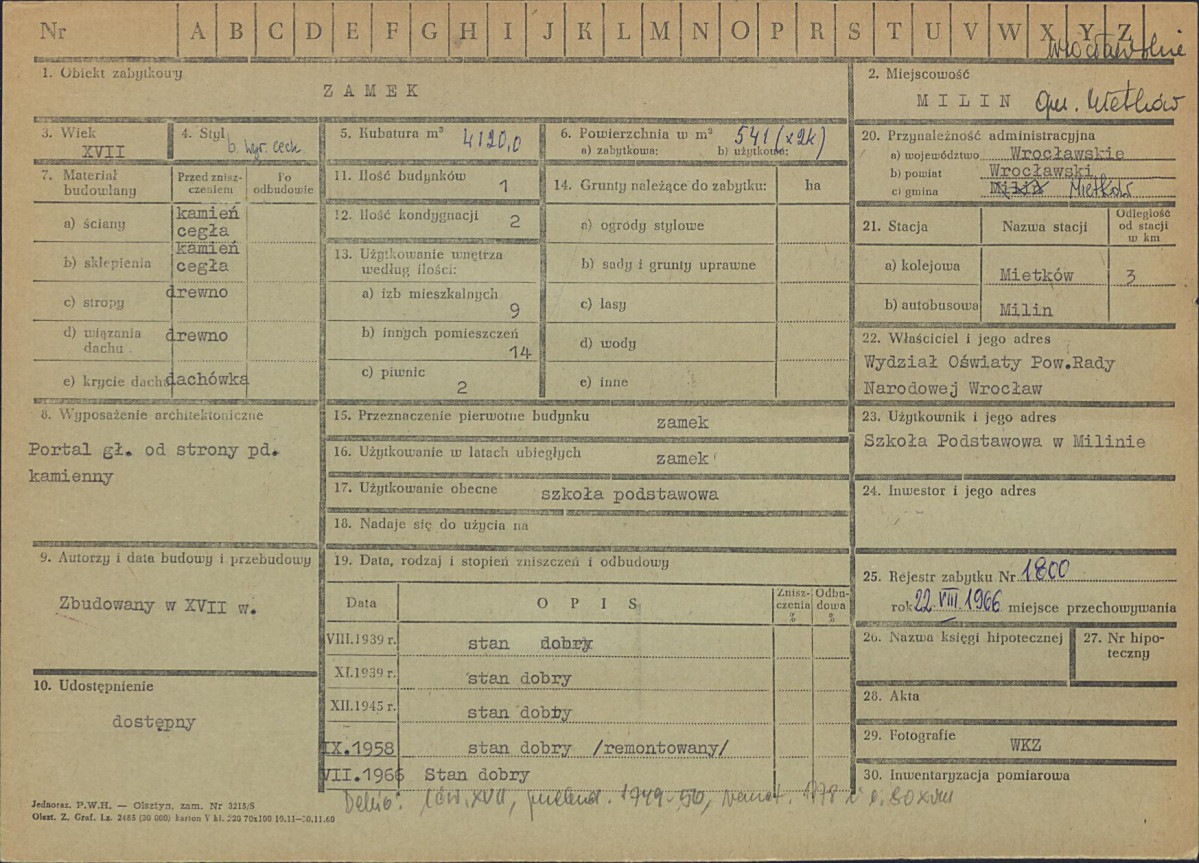 Nr A B C D E F G H I J K L M N O P R S T U V W X Y Z
wrocławskie
1. Obiekt zabytkowy
ZAMEK
2. Miejscowość
MILIN gm. Mietków
3. Wiek
XVII
4. Styl
b. wyr. cech
5. Kubatura m³ 4120,0
6. Powierzchnia w m² 541 (x2k)
a) zabytkowa: b) użytkowa:
7. Materiał budowlany
Przed zniszczeniem
Po odbudowie
a) ściany
kamień
cegła
b) sklepienia
kamień
cegła
c) stropy
drewno
d) wiązania dachu
drewno
e) krycie dachu
dachówka
11. Ilość budynków 1
12. Ilość kondygnacji 2
13. Użytkowanie wnętrza
według ilości:
a) izb mieszkalnych
9
b) innych pomieszczeń
14
c) piwnic
2
14. Grunty należące do zabytku: ha
a) ogrody stylowe
b) sady i grunty uprawne
c) lasy
d) wody
e) inne
20. Przynależność administracyjna
a) województwo Wrocławskie
b) powiat Wrocławski
c) gmina Milin Mietków
21. Stacja
Nazwa stacji
Odległość
od stacji
w km
a) kolejowa Mietków 3
b) autobusowa Milin
22. Właściciel i jego adres
Wydział Oświaty Pow.Rady
Narodowej Wrocław
8. Wyposażenie architektoniczne
Portal gł. od strony pd.
kamienny
15. Przeznaczenie pierwotne budynku zamek
16. Użytkowanie w latach ubiegłych zamek
17. Użytkowanie obecne szkoła podstawowa
18. Nadaje się do użycia na
23. Użytkownik i jego adres
Szkoła Podstawowa w Milinie
24. Inwestor i jego adres
9. Autorzy i data budowy i przebudowy
Zbudowany w XVII w.
10. Udostępnienie
dostępny
19. Data, rodzaj i stopień zniszczeń i odbudowy
Data
OPIS
Zniszczenia %
Odbudowa %
VIII.1939 r. stan dobry
XI.1939 r. stan dobry
XII.1945 r. stan dobry
IX.1958 stan dobry /remontowany/
VII.1966 Stan dobry
25. Rejestr zabytku Nr 1800
rok 22 VIII.1966 miejsce przechowywania
26. Nazwa księgi hipotecznej
27. Nr hipoteczny
28. Akta
29. Fotografie
WKZ
30. Inwentaryzacja pomiarowa
Jednoraz. P.W.H. — Olsztyn, zam. Nr 3215/S
Olszt. Z. Graf. Lz. 2485 (20 000) karton V kl. 220 70x100 10.11—30.11.60
XVII, 1949-50, 1778